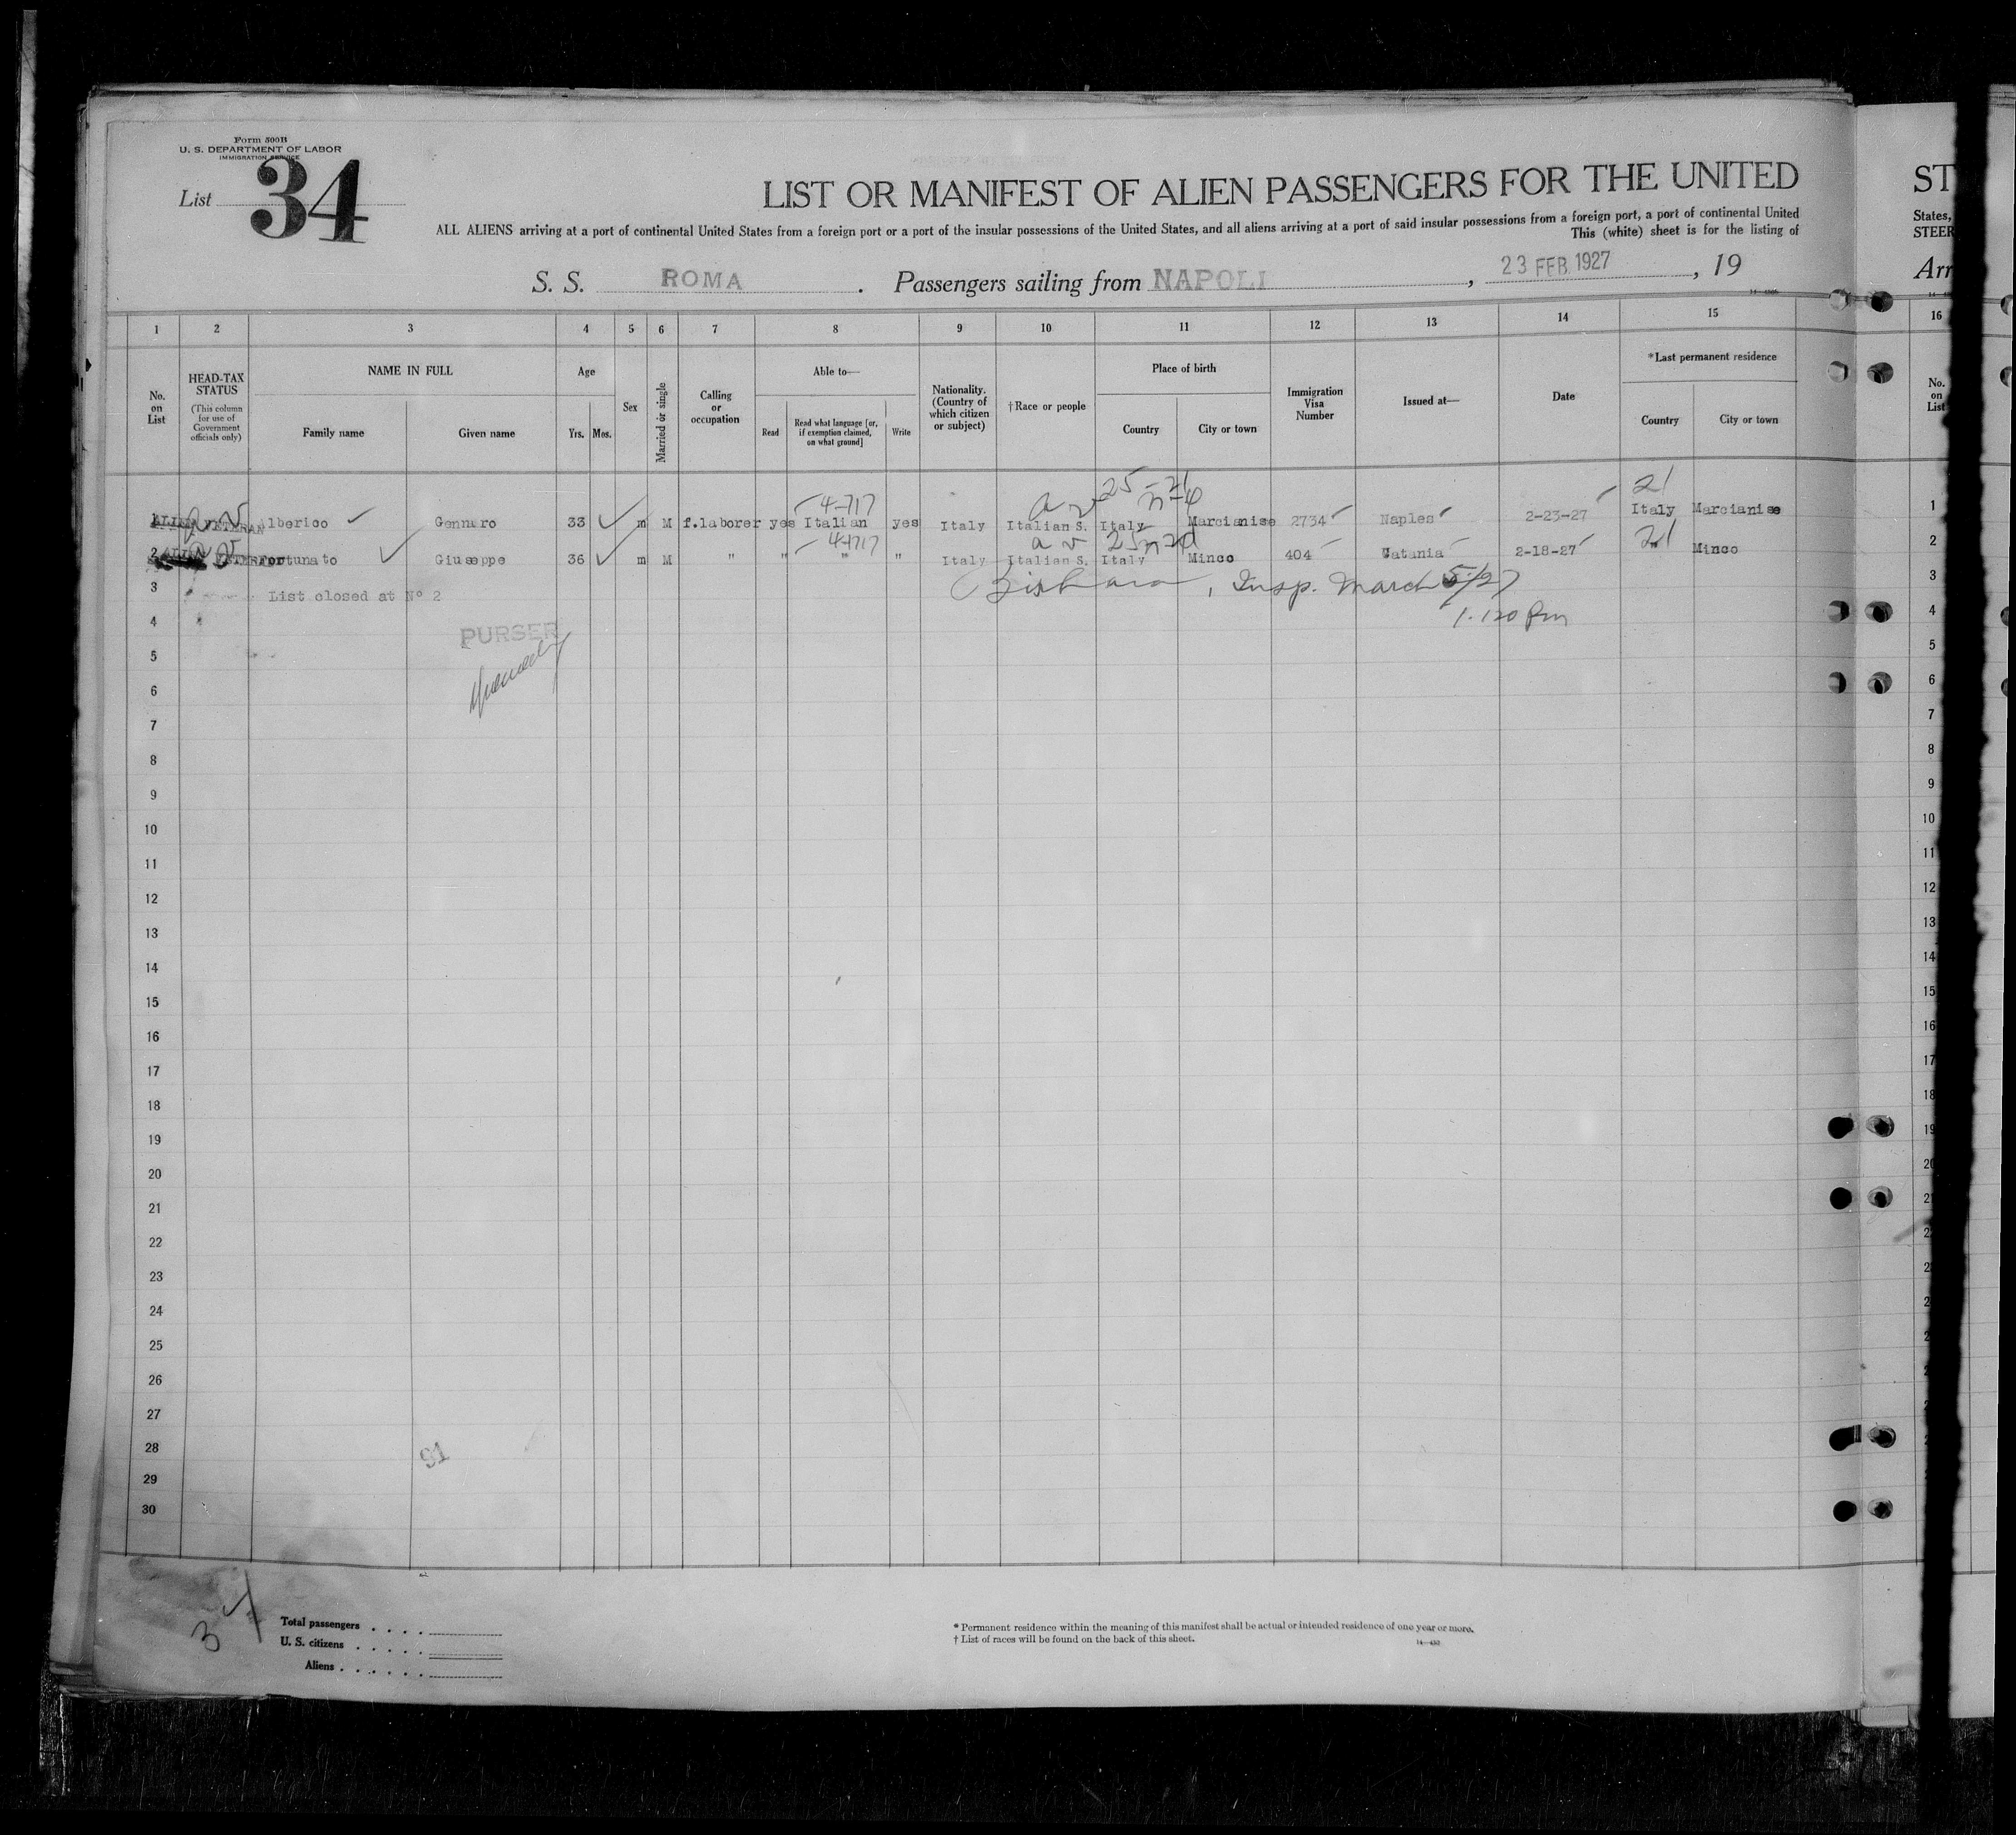 Form 500B
U. S. DEPARTMENT OF LABOR
IMMIGRATION SERVICE
List 34
LIST OR MANIFEST OF ALIEN PASSENGERS FOR THE UNITED
ALL ALIENS arriving at a port of continental United States from a foreign port or a port of the insular possessions of the United States, and all aliens arriving at a port of said insular possessions from a foreign port, a port of continental United
This (white) sheet is for the listing of
S. S. ROMA . Passengers sailing from NAPOLI , 23 FEB. 1927 , 19
ST
States,
STEER
Arr
1 2 3 4 5 6 7 8 9 10 11 12 13 14 15 16
No. on List
HEAD-TAX STATUS (This column for use of Government officials only)
NAME IN FULL
Family name Given name
Age
Yrs. Mos.
Sex
Married or single
Calling or occupation
Able to—
Read Read what language [or, if exemption claimed, on what ground] Write
Nationality. (Country of which citizen or subject)
†Race or people
Place of birth
Country City or town
Immigration Visa Number
Issued at—
Date
*Last permanent residence
Country City or town
No. on List
4-717 a v 25-21 21
1 ALIEN VETERAN Alberico Gennaro 33 m M f.laborer yes Italian yes Italy Italian S. Italy Marcianise 2734 Naples 2-23-27 Italy Marcianise 1
4-717 a v 21
2 ALIEN VETERAN Fortunato Giuseppe 36 m M " " " " Italy Italian S. Italy Mineo 404 Catania 2-18-27 " Mineo 2
3 List closed at Nº 2 , Insp. March 5/27 3
4 PURSER 1.20 Pm 4
5 5
6 6
7 7
8 8
9 9
10 10
11 11
12 12
13 13
14 14
15 15
16 16
17 17
18 18
19 19
20 20
21 21
22
23
24
25
26
27
28 91
29
30
34
Total passengers
U. S. citizens
Aliens
* Permanent residence within the meaning of this manifest shall be actual or intended residence of one year or more.
† List of races will be found on the back of this sheet.